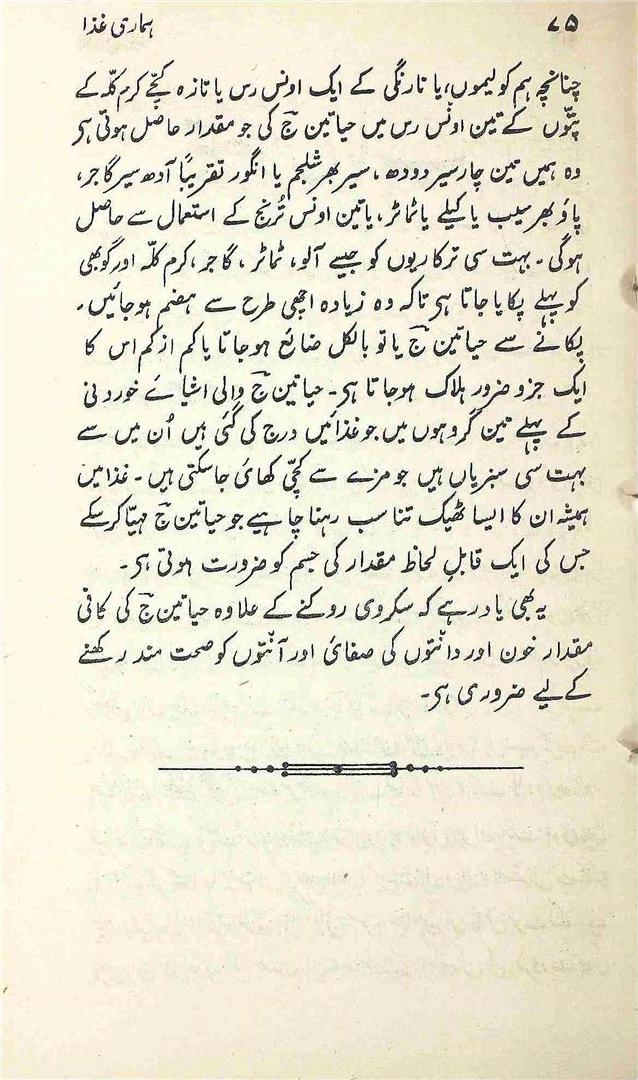 ۷۵ ہماری غذا
چنانچہ ہم کو لیموں، یا نارنگی کے ایک اونس رس یا تازہ کچّے کرم کلّہ کے
پتّوں کے تین اونس رس میں حیاتین جؔ کی جو مقدار حاصل ہوتی ہی
وہ ہمیں تین چار سیر دودھ، سیر بھر شلجم یا انگور تقریباً آدھ سیر گاجر،
پاؤ بھر سیب یا کیلے یا ٹماٹر، یا تین اونس تُرنج کے استعمال سے حاصل
ہوگی۔ بہت سی ترکاریوں کو جیسے آلو، ٹماٹر، گاجر، کرم کلّہ اور گوبھی
کو پہلے پکایا جاتا ہی تاکہ وہ زیادہ اچھی طرح سے ہضم ہوجائیں۔
پکانے سے حیاتین جؔ یا تو بالکل ضائع ہوجاتا یا کم از کم اس کا
ایک جزو ضرور ہلاک ہوجاتا ہی۔ حیاتین جؔ والی اشیائے خوردنی
کے پہلے تین گروہوں میں جو غذائیں درج کی گئی ہیں اُن میں سے
بہت سی سبزیاں ہیں جو مزے سے کچّی کھائی جاسکتی ہیں۔ غذا میں
ہمیشہ ان کا ایسا ٹھیک تناسب رہنا چاہیے جو حیاتین جؔ مہیّا کرسکے
جس کی ایک قابلِ لحاظ مقدار کی جسم کو ضرورت ہوتی ہی۔
یہ بھی یاد رہے کہ سکروی روکنے کے علاوہ حیاتین جؔ کی کافی
مقدار خون اور دانتوں کی صفائی اور آنتوں کو صحت مند رکھنے
کے لیے ضروری ہی۔